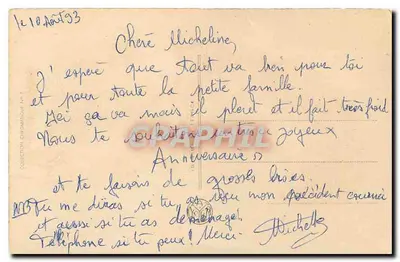 le 10 Août 93
Chère Micheline,
J'espère que tout va bien pour toi
et pour toute la petite famille.
Ici ça va mais il pleut et il fait très froid
Nous te souhaitons un très joyeux
Anniversaire
et te faisons de grosses bises.
NB Tu me diras si tu as reçu mon précédent courrier
et aussi si tu as déménagé!
Téléphone si tu peux! Merci. Michelle
CPAPHIL.com